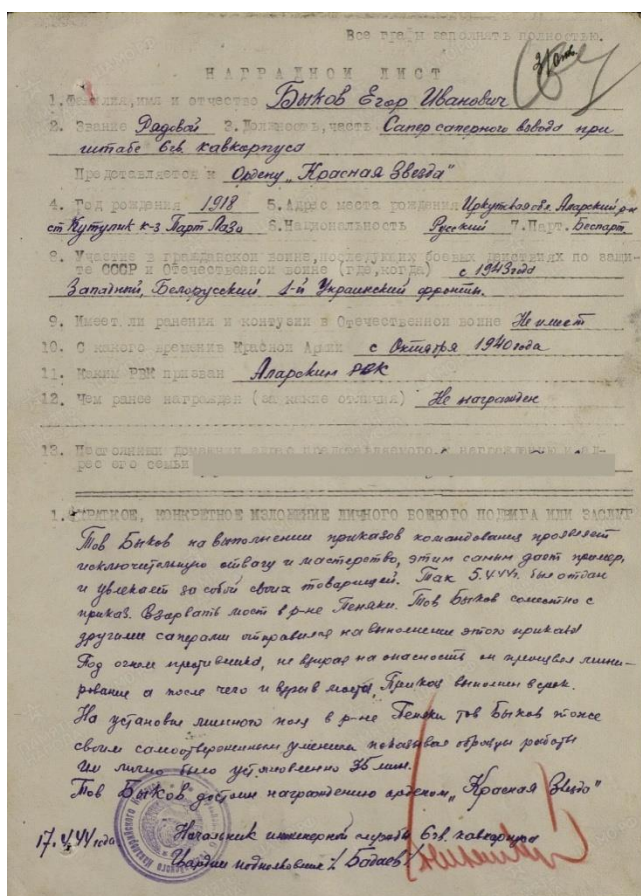 Все графы заполнять полностью.
НАГРАДНОЙ ЛИСТ
1. Фамилия, имя и отчество Быков Егор Иванович
2. Звание Рядовой 3. Должность, часть Сапер саперного взвода при
штабе 6гв. кавкорпуса
Представляется к Ордену „Красная Звезда"
4. Год рождения 1918 5. Адрес места рождения Иркутская обл. Аларский р-н
ст Кутулик к-з Парт 6. Национальность Русский 7. Парт. Беспарт.
8. Участие в гражданской войне, последующих боевых действиях по защи-
те СССР и Отечественной войне (где, когда) с 1943 года
Западный, Белорусский 1-й Украинский фронты.
9. Имеет ли ранения и контузии в Отечественной войне Не имеет
10. С какого времени в Красной Армии с Октября 1940 года
11. Каким РВК призван Аларским РВК
12. Чем ранее награжден (за какие отличия) Не награжден
13. Постоянный домашний адрес представляемого к награждению и ад-
рес его семьи
1. КРАТКОЕ, КОНКРЕТНОЕ ИЗЛОЖЕНИЕ ЛИЧНОГО БОЕВОГО ПОДВИГА ИЛИ ЗАСЛУГ
Тов Быков на выполнении приказов командования проявляет
исключительную отвагу и мастерство, этим самым дает пример,
и увлекает за собой своих товарищей. Так 5.4.44г. был отдан
приказ. Взорвать мост в р-не Пеняки. Тов Быков совместно с
другими саперами отправился на выполнение этого приказа
Под огнем противника, не взирая на опасность он произвел мини-
рование а после чего и взрыв моста. Приказ выполнен в срок.
На установке минного поля в р-не Пеняки тов Быков тоже
своим самоотверженным умением показывал образцы работы
Им лично было установлено 35 мин.
Тов Быков достоин награждению орденом „Красная Звезда"
17.4.44 года Начальник инженерной службы 6гв. кавкорпуса
Гвардии подполковник / Бодаев /